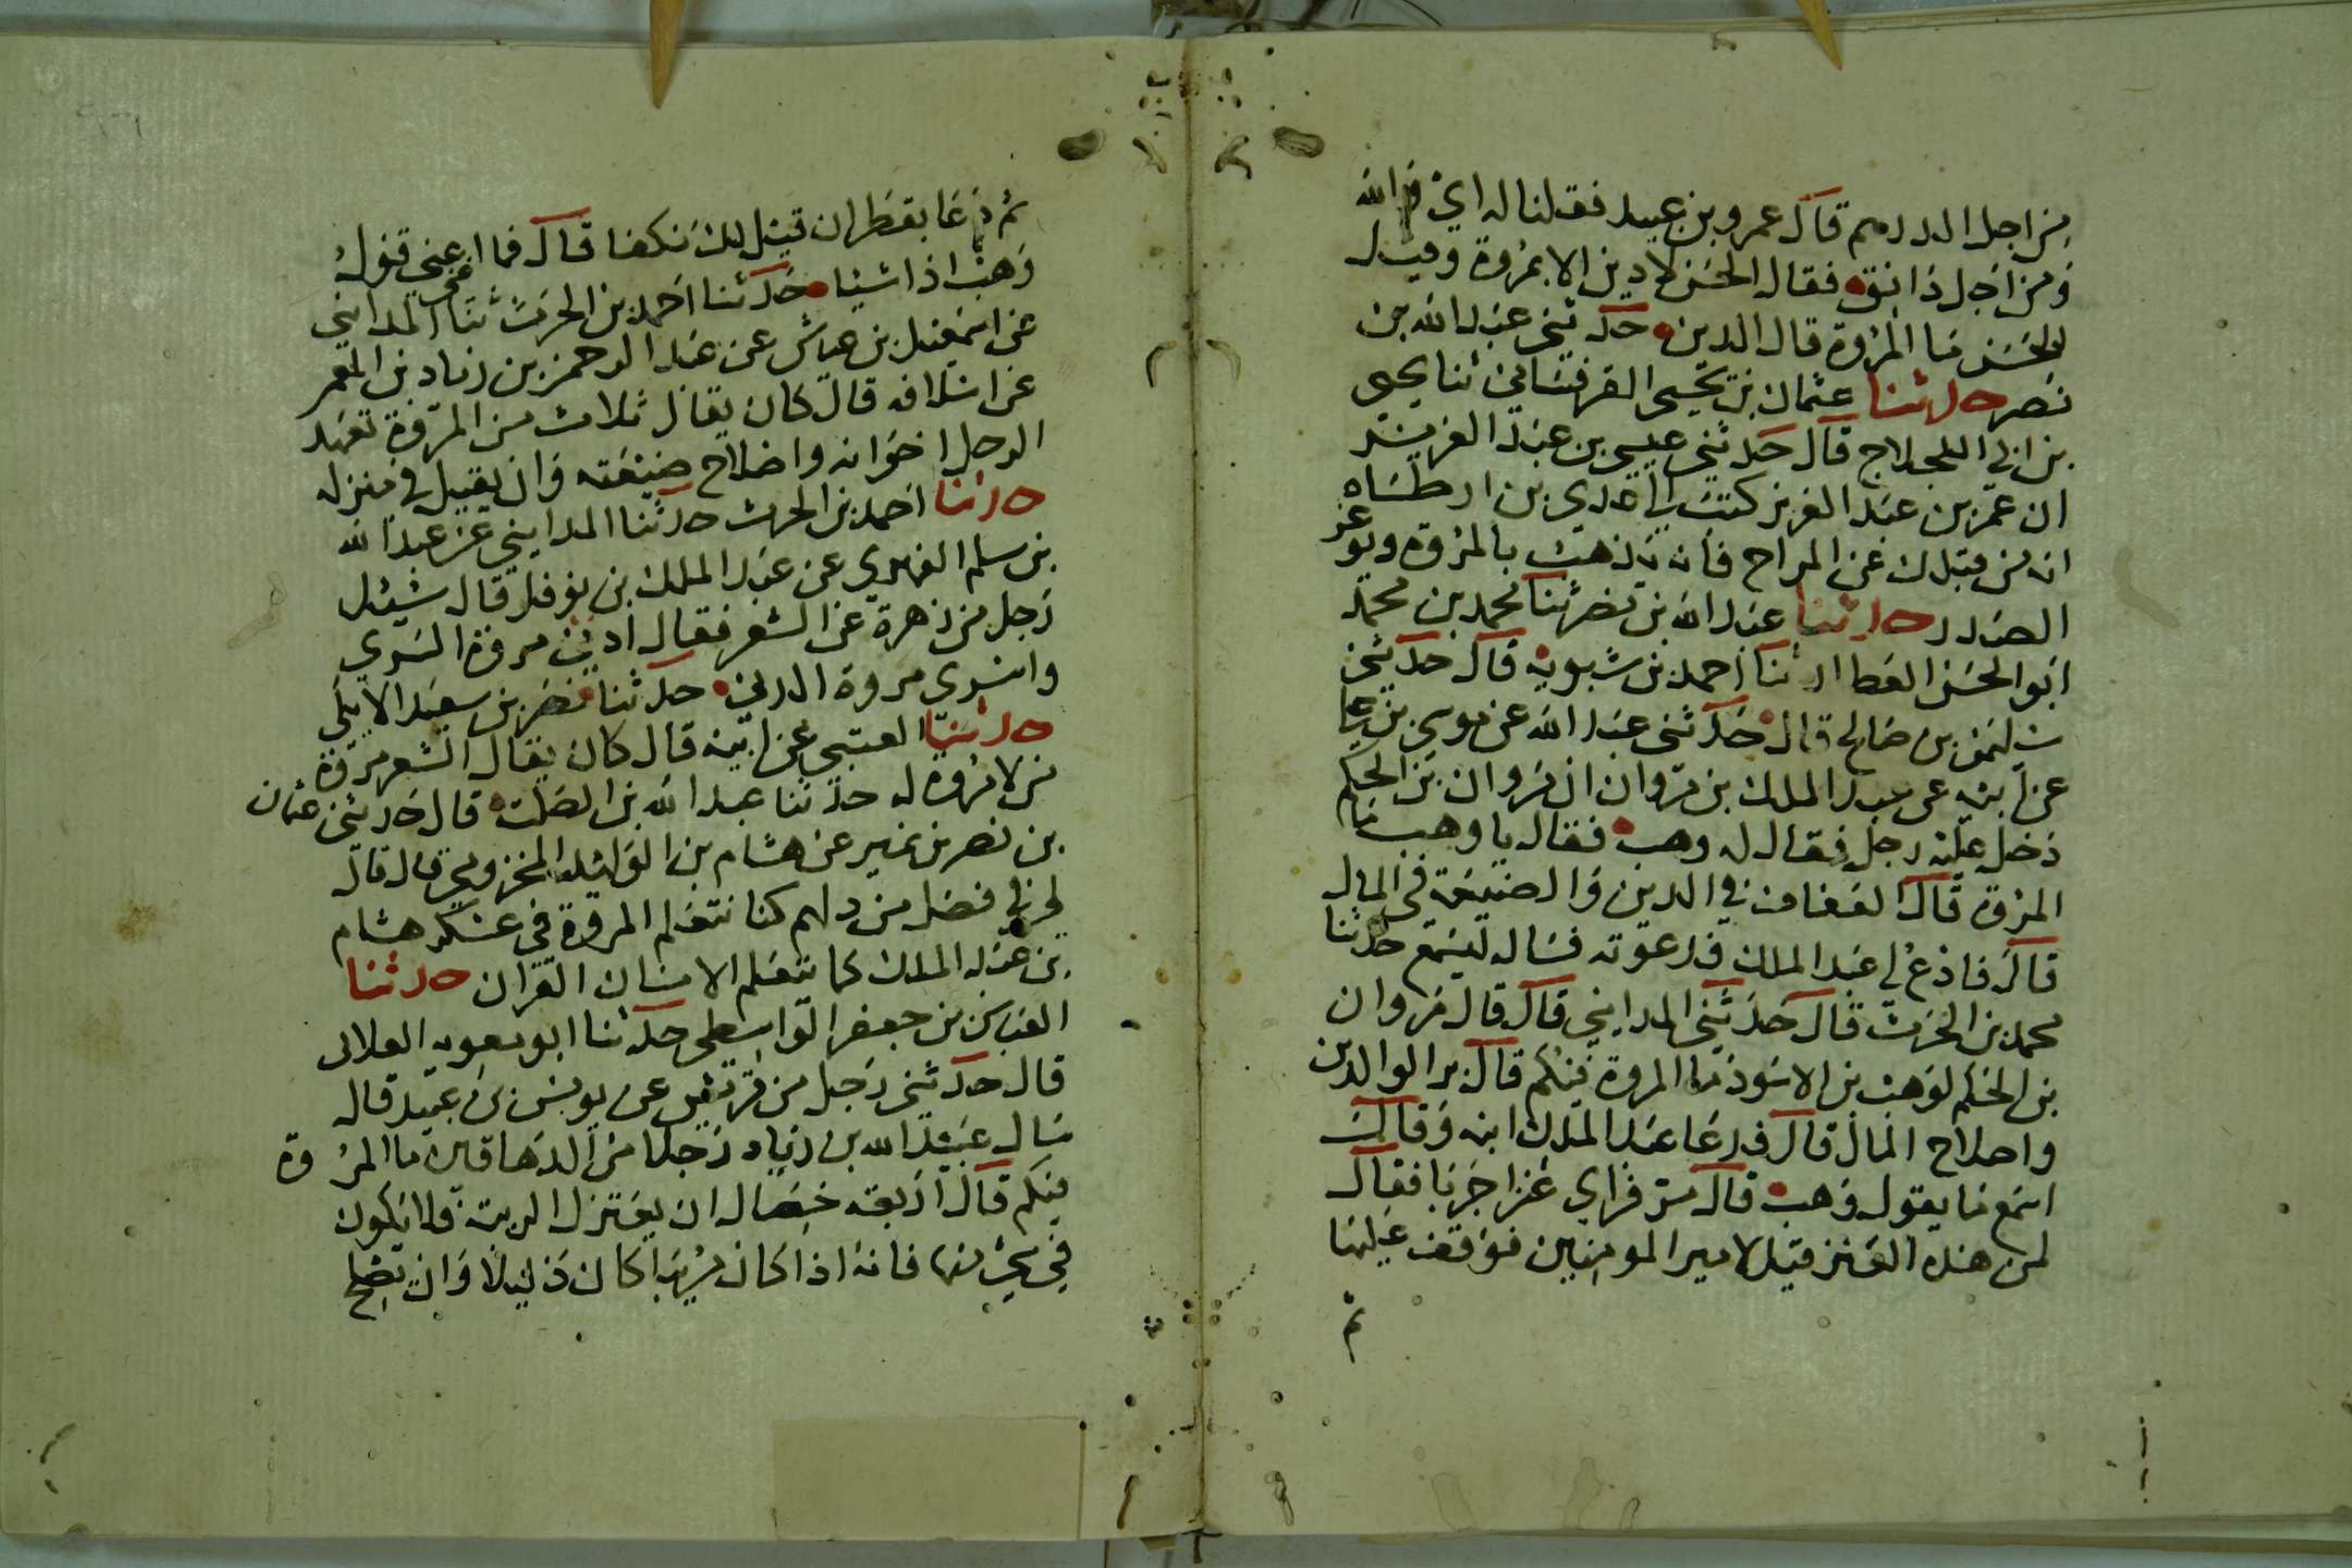 من اجل الدرهم قال عمرو بن عبيد فقلنا له اي والله
ومن اجل دانق فقال الحسن لا دين الا بمروة وقيل
للحسن ما المروة قال الدين حدثني عبد الله بن
نصر حدثنا عثمان بن يحيى القرقساني ثنا يحيى
بن ابي اللجلاج قال حدثني عيسى بن عبد العزيز
ان عمر بن عبد العزيز كتب الى عدي بن ارطاه
انه من قبلك عن المزاح فانه يذهب بالمروة ويوغر
الصدر حدثنا عبد الله بن نصر ثنا محمد بن محمد
ابو الحسن العطار ثنا احمد بن شبويه قال حدثني
سليمن بن صالح قال حدثني عبد الله عن موسى بن
عن ابيه عن عبد الملك بن مروان ان مروان بن الحكم
دخل عليه رجل فقال له وهب فقال يا وهب ما
المروة قال العفاف في الدين والصنيعة في المال
قال فادع لي عبد الملك فدعوته فساله ليسمع حدثنا
محمد بن الحرث قال حدثني المدايني قال قال مروان
بن الحكم لوهب بن الاسود ما المروة فيكم قال بر الوالدين
واصلاح المال قال فدعا عبد الملك ابنه وقال
اسمع ما يقول وهب قال مر فراى عنزا جربا فقال
لمن هذه العنز قيل لامير المومنين فوقف عليها
ثم
ثم دعا بقطران قيل لك نكفا قال فما اعني قول
وهب اذا شيا حدثنا احمد بن الحرث ثنا المدايني
عن اسمعيل بن عياش عن عبد الرحمن بن زياد بن انعم
عن اسلافه قال كان يقال ثلاث من المروة تعهد
الرجل اخوانه واصلاح ضيعته وان يقيل في منزله
حدثنا احمد بن الحرث حدثنا المدايني عن عبد الله
بن سلم الفهري عن عبد الملك بن نوفل قال سئل
رجل من زهرة عن الشعر فقال ادنى مروة السري
واسرى مروة الدني حدثنا نصر بن سعيد الايلي
حدثنا العتبي عن ابيه قال كان يقال الشعر مروة
من لا مروة له حدثنا عبد الله بن الصلت قال حدثني عثمان
بن نصر بن نمير عن هشام بن الوليد المخزومي قال قال
لي فضل من دلهم كنا نتعلم المروة في عسكر هشام
بن عبد الملك كما يتعلم الانسان القران حدثنا
العباس بن جعفر الواسطي حدثنا ابو معويه الغلابي
قال حدثني رجل من قريش عن يونس بن عبيد قال
سال عبيد الله بن زياد رجلا من الدهاقين ما المروة
فيكم قال اربع خصال ان يعتزل الريبة فلا يكون
في شي منها فانه اذا كان مريبا كان ذليلا وان يصلح